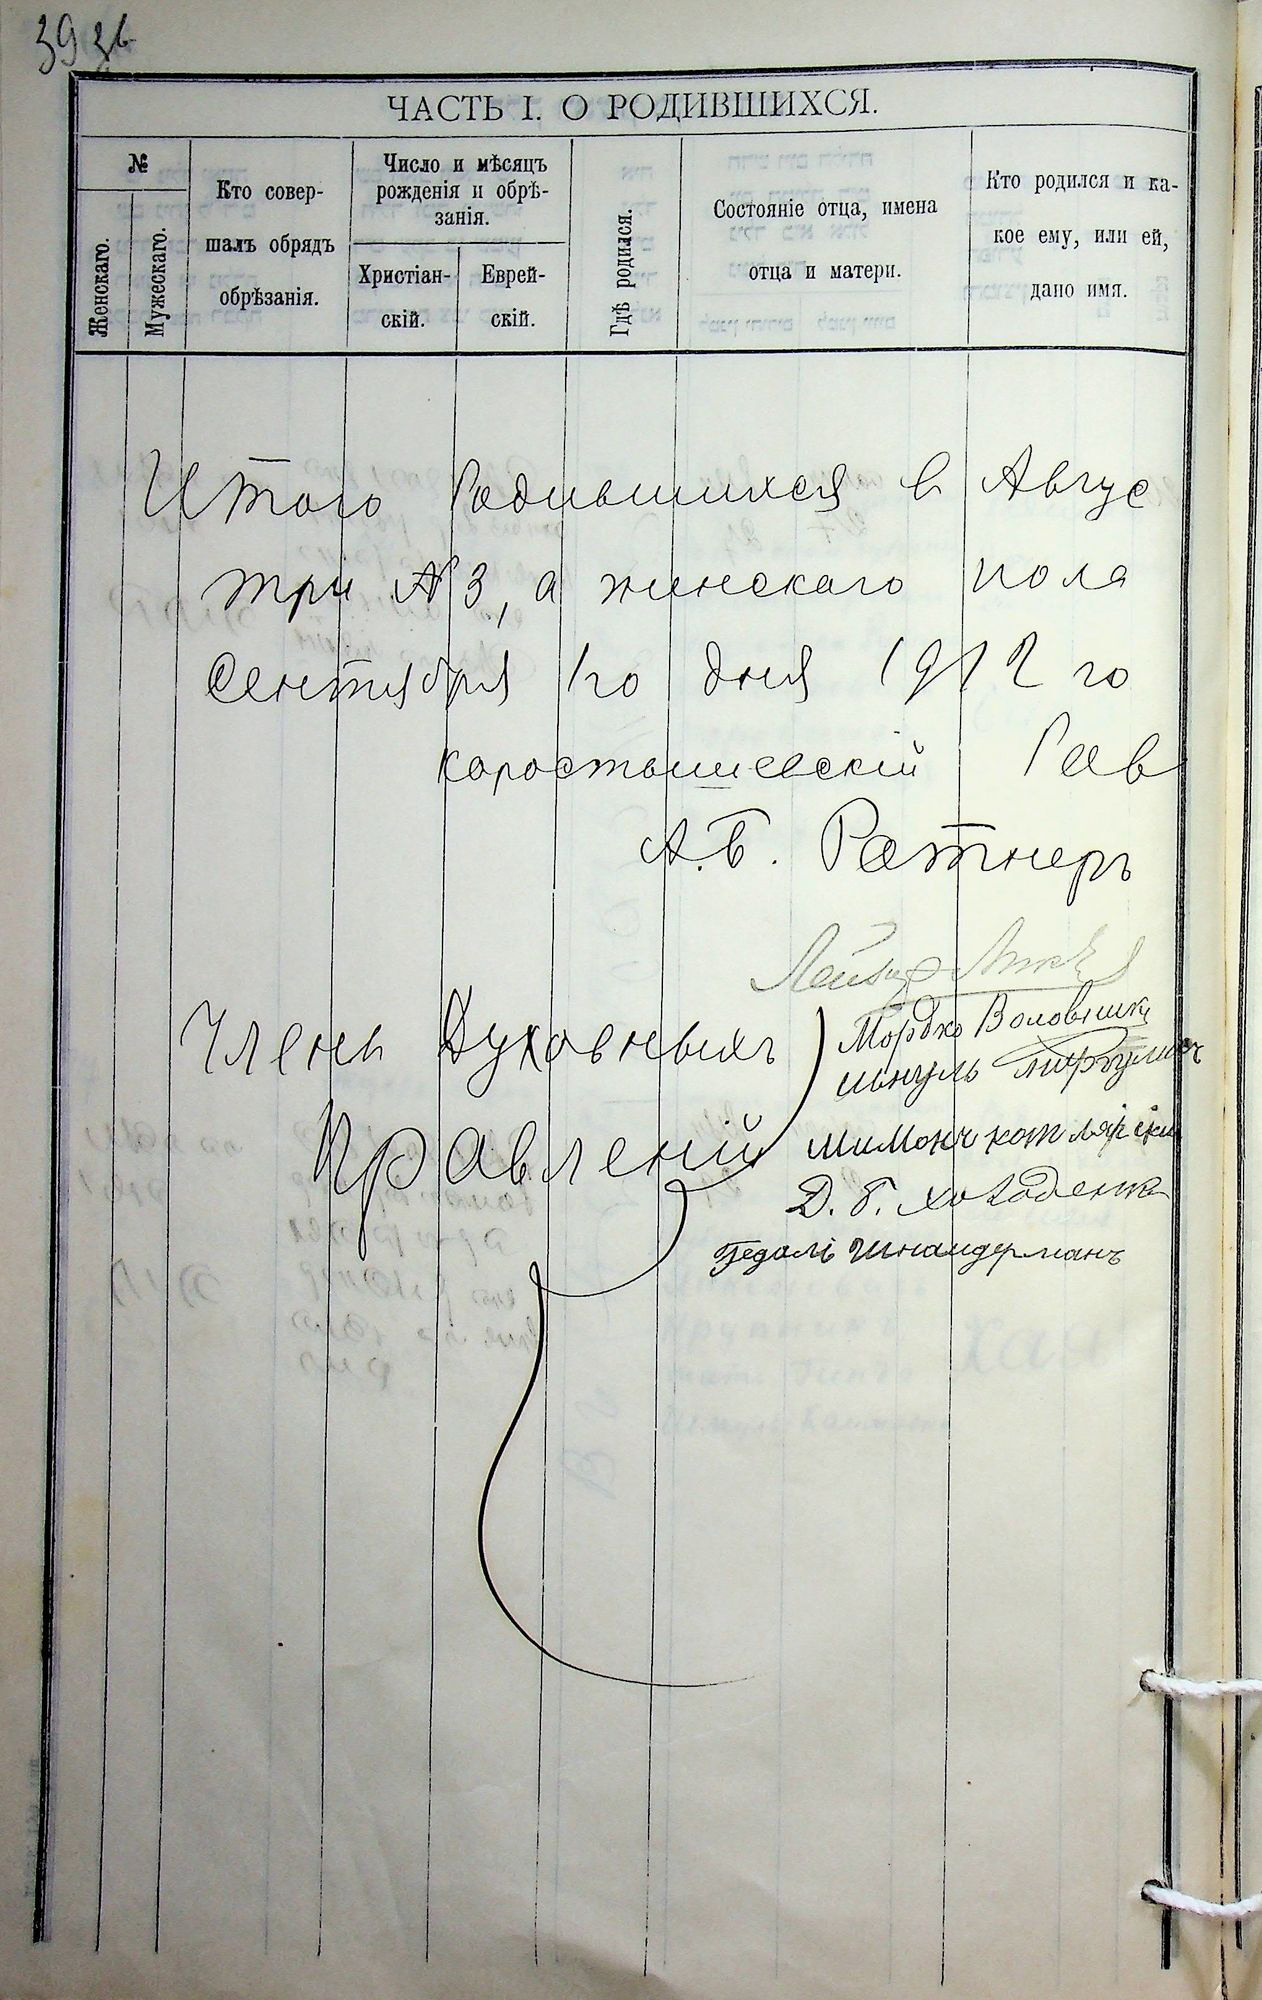 39 зв
ЧАСТЬ I. О РОДИВШИХСЯ.
№
Женскаго.
Мужескаго.
Кто совер-
шалъ обрядъ
обрѣзанія.
Число и мѣсяцъ
рожденія и обрѣ-
занія.
Христіан-
скій.
Еврей-
скій.
Гдѣ родился.
Состояніе отца, имена
отца и матери.
Кто родился и ка-
кое ему, или ей,
дано имя.
Итого Родившихся в Авгус
три № 3, а женскаго пола
Сентября 1го дня 1912 го
Коростышевскій Рав
А. Б. Ратнеръ
Члены Духовныхъ
Правленій
Мордко
Шимонъ Котлярскі
Д. Б. Холоденко
Гедалі Шнаидерманъ